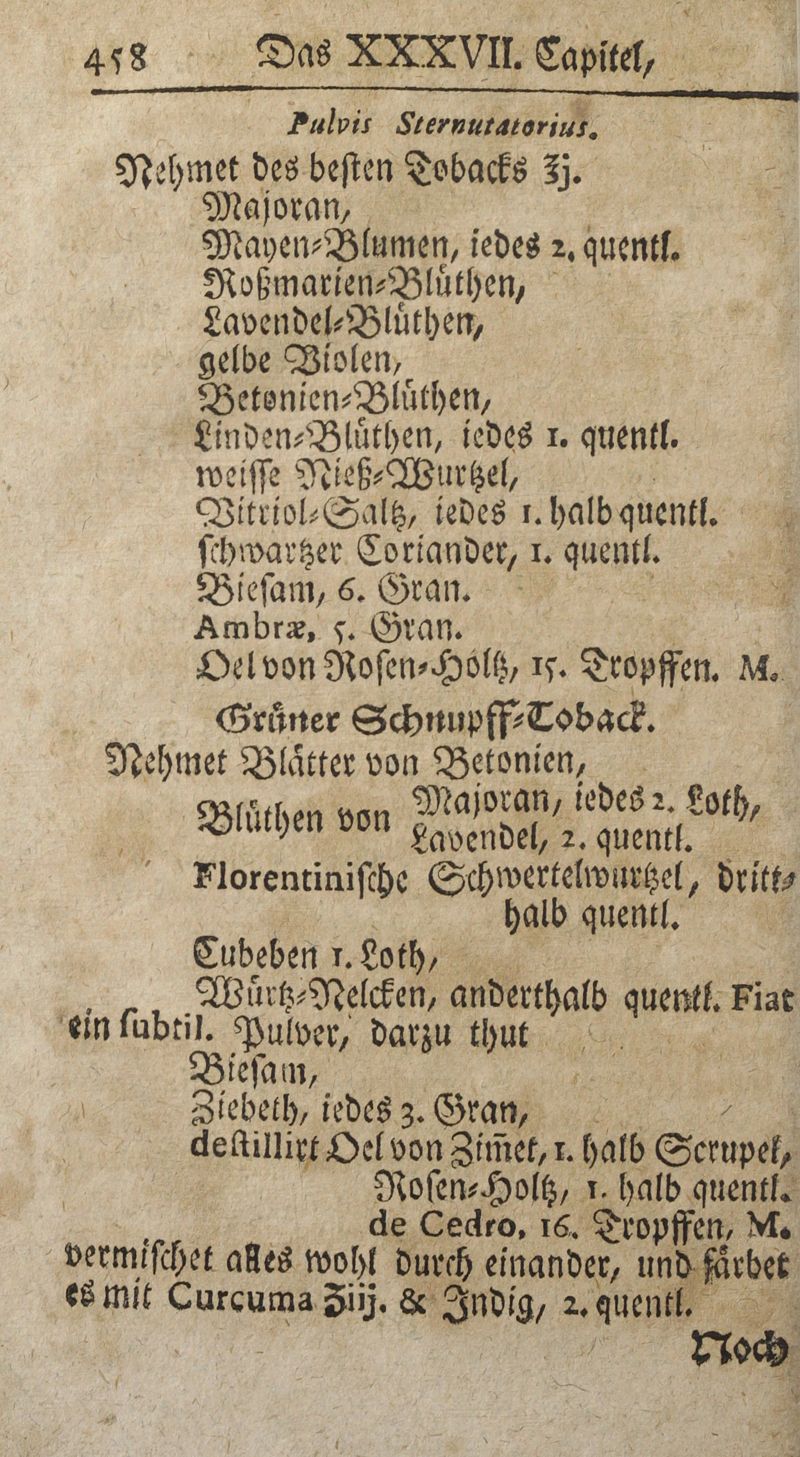 458 Das XXXVII. Capitel,
Pulvis Sternutatorius.
Nehmet des besten Tobacks ℥j.
Majoran,
Mayen-Blumen, iedes 2. quentl.
Roßmarien-Blüthen,
Lavendel-Blüthen,
gelbe Violen,
Betonien-Blüthen,
Linden-Blüthen, iedes 1. quentl.
weisse Nieß-Wurtzel,
Vitriol-Saltz, iedes 1. halb quentl.
schwartzer Coriander, 1. quentl.
Biesam, 6. Gran.
Ambræ, 5. Gran.
Oel von Rosen-Höltz, 15. Tropffen. M.
Grüner Schnupff-Toback.
Nehmet Blätter von Betonien,
Blüthen von Majoran, iedes 2. Loth,
Lavendel, 2. quentl.
Florentinische Schwertelwurtzel, dritt-
halb quentl.
Cubeben 1. Loth,
Würtz-Nelcken, anderthalb quentl. Fiat
ein subtil. Pulver, darzu thut
Biesam,
Ziebeth, iedes 3. Gran,
destillirt Oel von Zim̃et, 1. halb Scrupel,
Rosen-Holtz, 1. halb quentl.
de Cedro, 16. Tropffen, M.
vermischet alles wohl durch einander, und färbet
es mit Curcuma ʒiij. & Indig, 2. quentl.
Noch